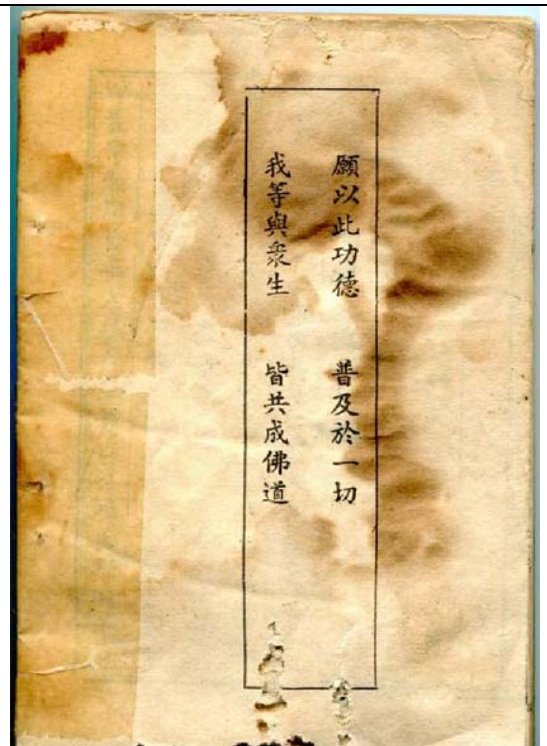 願以此功德　普及於一切
我等與衆生　皆共成佛道